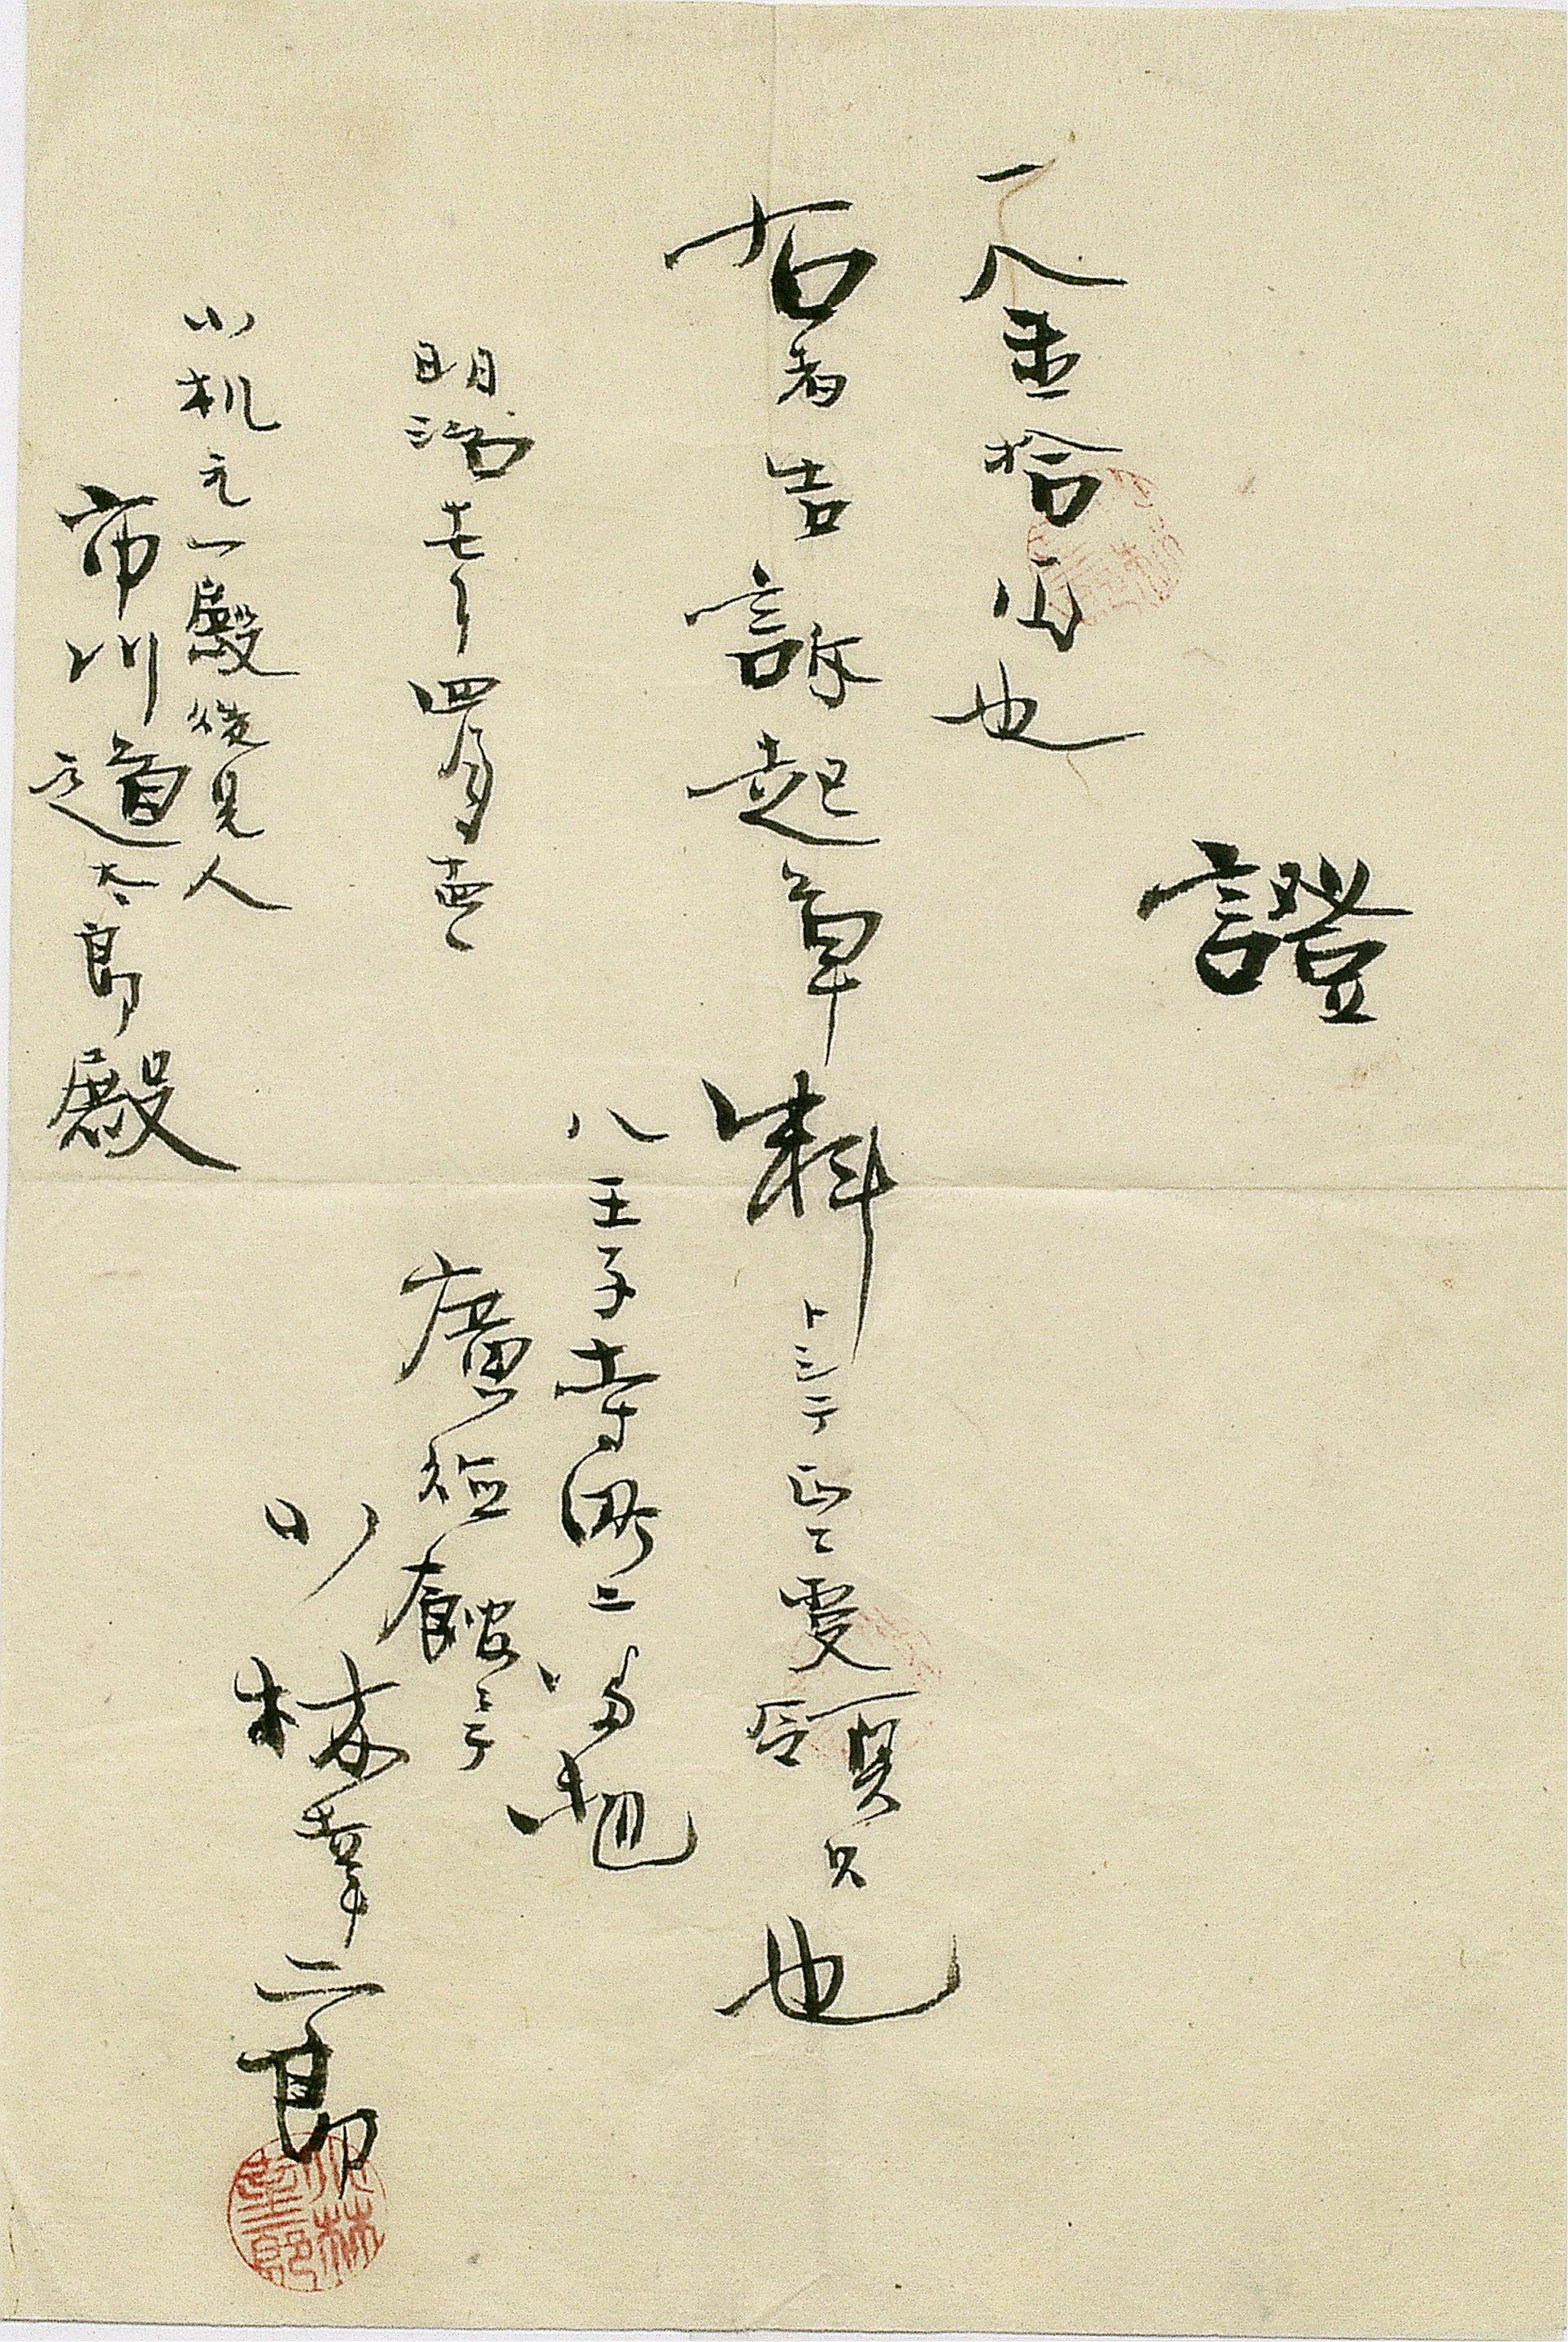 證
一金拾円也
右者告訴起草料トシテ正ニ受領候也
明治十七年四月十五日
八王子寺町二番地
廣徳館ニテ
小林幸二郎
小机元一殿後見人
市川道太郎殿